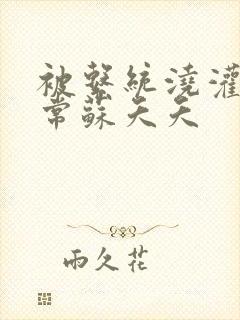 被繫統澆灌
常蘇夭夭
雨久花